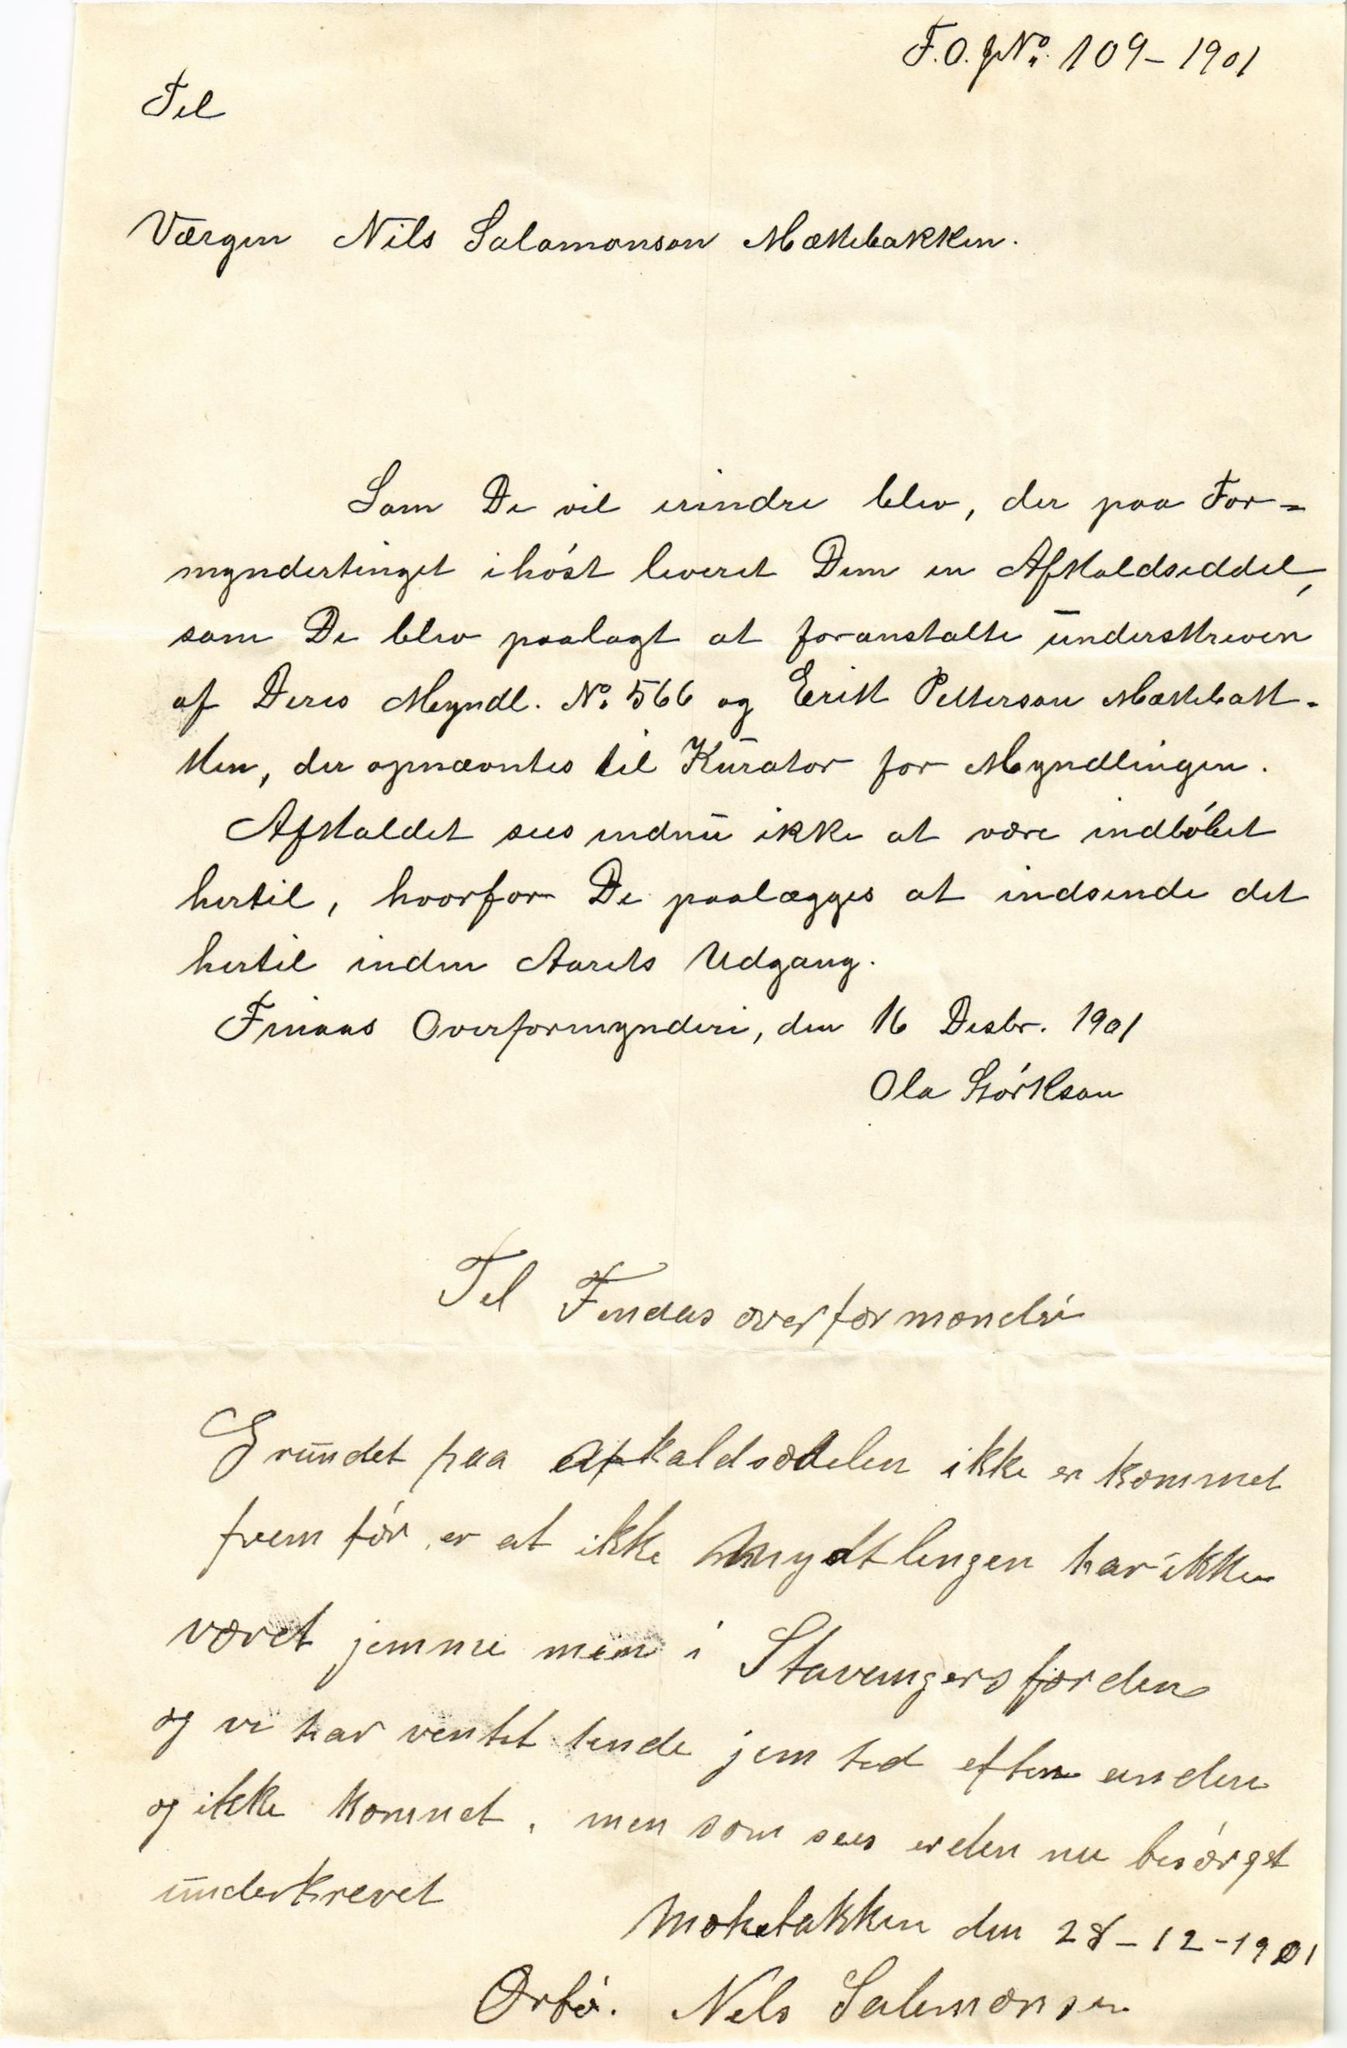 F.O.JNo. 109-1901
Til
Værgen Nils Salamonson Mækebakken.
Som De vil erindre blev, der paa For=
myndertinget ihóst leveret Dem en Afkaldseddel,
som De blev paalagt at foranstalte underskreven
af Deres Myndl. No. 566 og Erik Petterson Mækebak-
ken, der opnævntes til Kurator for Myndlingen.
Afkaldet sees endnu ikke at være indlóbet
hertil, hvorfor De paalægges at indsende det
hertil inden Aarets Udgang.
Finaas Overformynderi, den 16 Desbr. 1901
Ola Stórkson
Til Findas overformonderi
Grundet paa afkaldsedelen ikke er kommet
frem fór, er at ikke Mydtlingen har ikke
været jemme men i Stavangersfjorden
og vi har ventet hende jem tid efter anden
og ikke komnet, men som sees er den nu besórget
underkrevet
Mokebakken den 28-12-1901
Ørbó. Nels Salemonsen